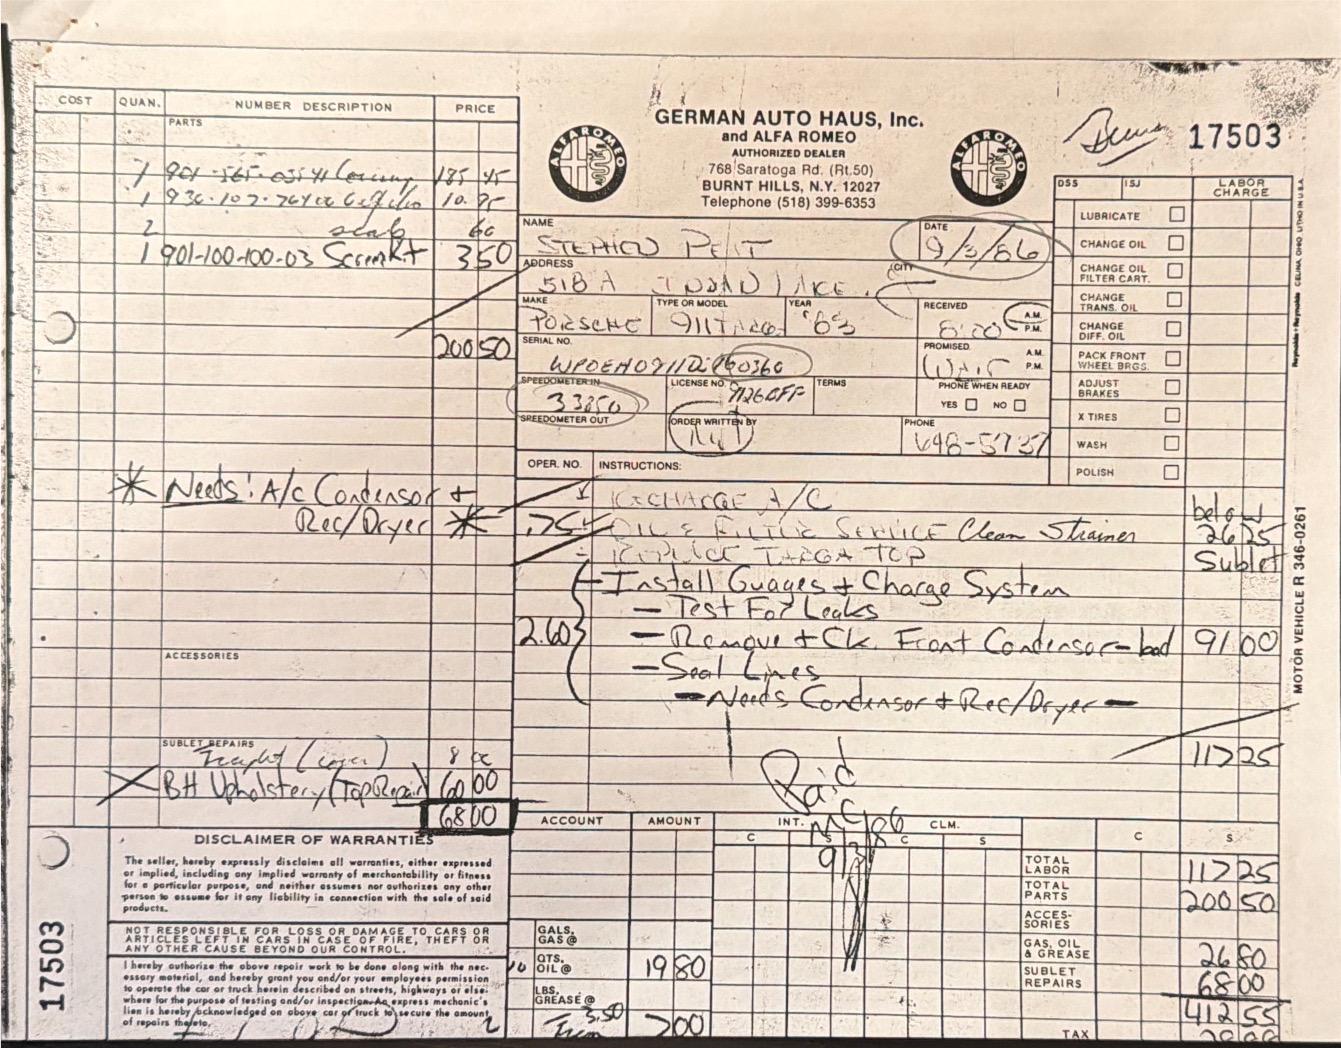 COST QUAN. NUMBER DESCRIPTION PRICE
PARTS
1 901-565-035 185 45
1 930-107-764 10.95
2 seals 60
1 901-100-100-03 Screen Kt 3 50
200 50
* Needs: A/c Condensor +
Rec/Dryer *
ACCESSORIES
SUBLET REPAIRS
Freight (cover) 8 00
BH Upholstery (Top Repair) 60 00
68 00
DISCLAIMER OF WARRANTIES
The seller, hereby expressly disclaims all warranties, either expressed
or implied, including any implied warranty of merchantability or fitness
for a particular purpose, and neither assumes nor authorizes any other
person to assume for it any liability in connection with the sale of said
products.
NOT RESPONSIBLE FOR LOSS OR DAMAGE TO CARS OR
ARTICLES LEFT IN CARS IN CASE OF FIRE, THEFT OR
ANY OTHER CAUSE BEYOND OUR CONTROL.
I hereby authorize the above repair work to be done along with the nec-
essary material, and hereby grant you and/or your employees permission
to operate the car or truck herein described on streets, highways or else-
where for the purpose of testing and/or inspection. An express mechanic's
lien is hereby acknowledged on above car or truck to secure the amount
of repairs thereto.
17503
ALFA ROMEO
GERMAN AUTO HAUS, Inc.
and ALFA ROMEO
AUTHORIZED DEALER
768 Saratoga Rd. (Rt.50)
BURNT HILLS, N.Y. 12027
Telephone (518) 399-6353
ALFA ROMEO
17503
NAME
DATE
9/3/86
ADDRESS
518A INDIAN LAKE
CITY
MAKE
PORSCHE
TYPE OR MODEL
911 TARGA
YEAR
'83
RECEIVED
8:00
A.M.
P.M.
SERIAL NO.
PROMISED
WAIT
A.M.
P.M.
SPEEDOMETER IN
33850
LICENSE NO.
TERMS
PHONE WHEN READY
YES NO
SPEEDOMETER OUT
ORDER WRITTEN BY
PHONE
648-5737
DSS ISJ LABOR CHARGE
LUBRICATE
CHANGE OIL
CHANGE OIL FILTER CART.
CHANGE TRANS. OIL
CHANGE DIFF. OIL
PACK FRONT WHEEL BRGS.
ADJUST BRAKES
X TIRES
WASH
POLISH
OPER. NO. INSTRUCTIONS:
RECHARGE A/C below
.75 OIL & FILTER SERVICE Clean Strainer 26 25
REPLACE TARGA TOP Sublet
Install Guages + Charge System
- Test For Leaks
2.60 - Remove + Ck. Front Condensor - bad 91 00
- Seal Lines
- Needs Condensor + Rec/Dryer -
117 25
Paid
MC
9/3/86
ACCOUNT AMOUNT INT. CLM.
C S C S C S
GALS. GAS @
QTS. OIL @ 19 80
LBS. GREASE @
3.50
7 00
TOTAL LABOR 117 25
TOTAL PARTS 200 50
ACCESSORIES
GAS, OIL & GREASE 26 80
SUBLET REPAIRS 68 00
412 55
TAX
MOTOR VEHICLE R 346-0261
Reynolds + Reynolds CELINA, OHIO, LITHO IN U.S.A.